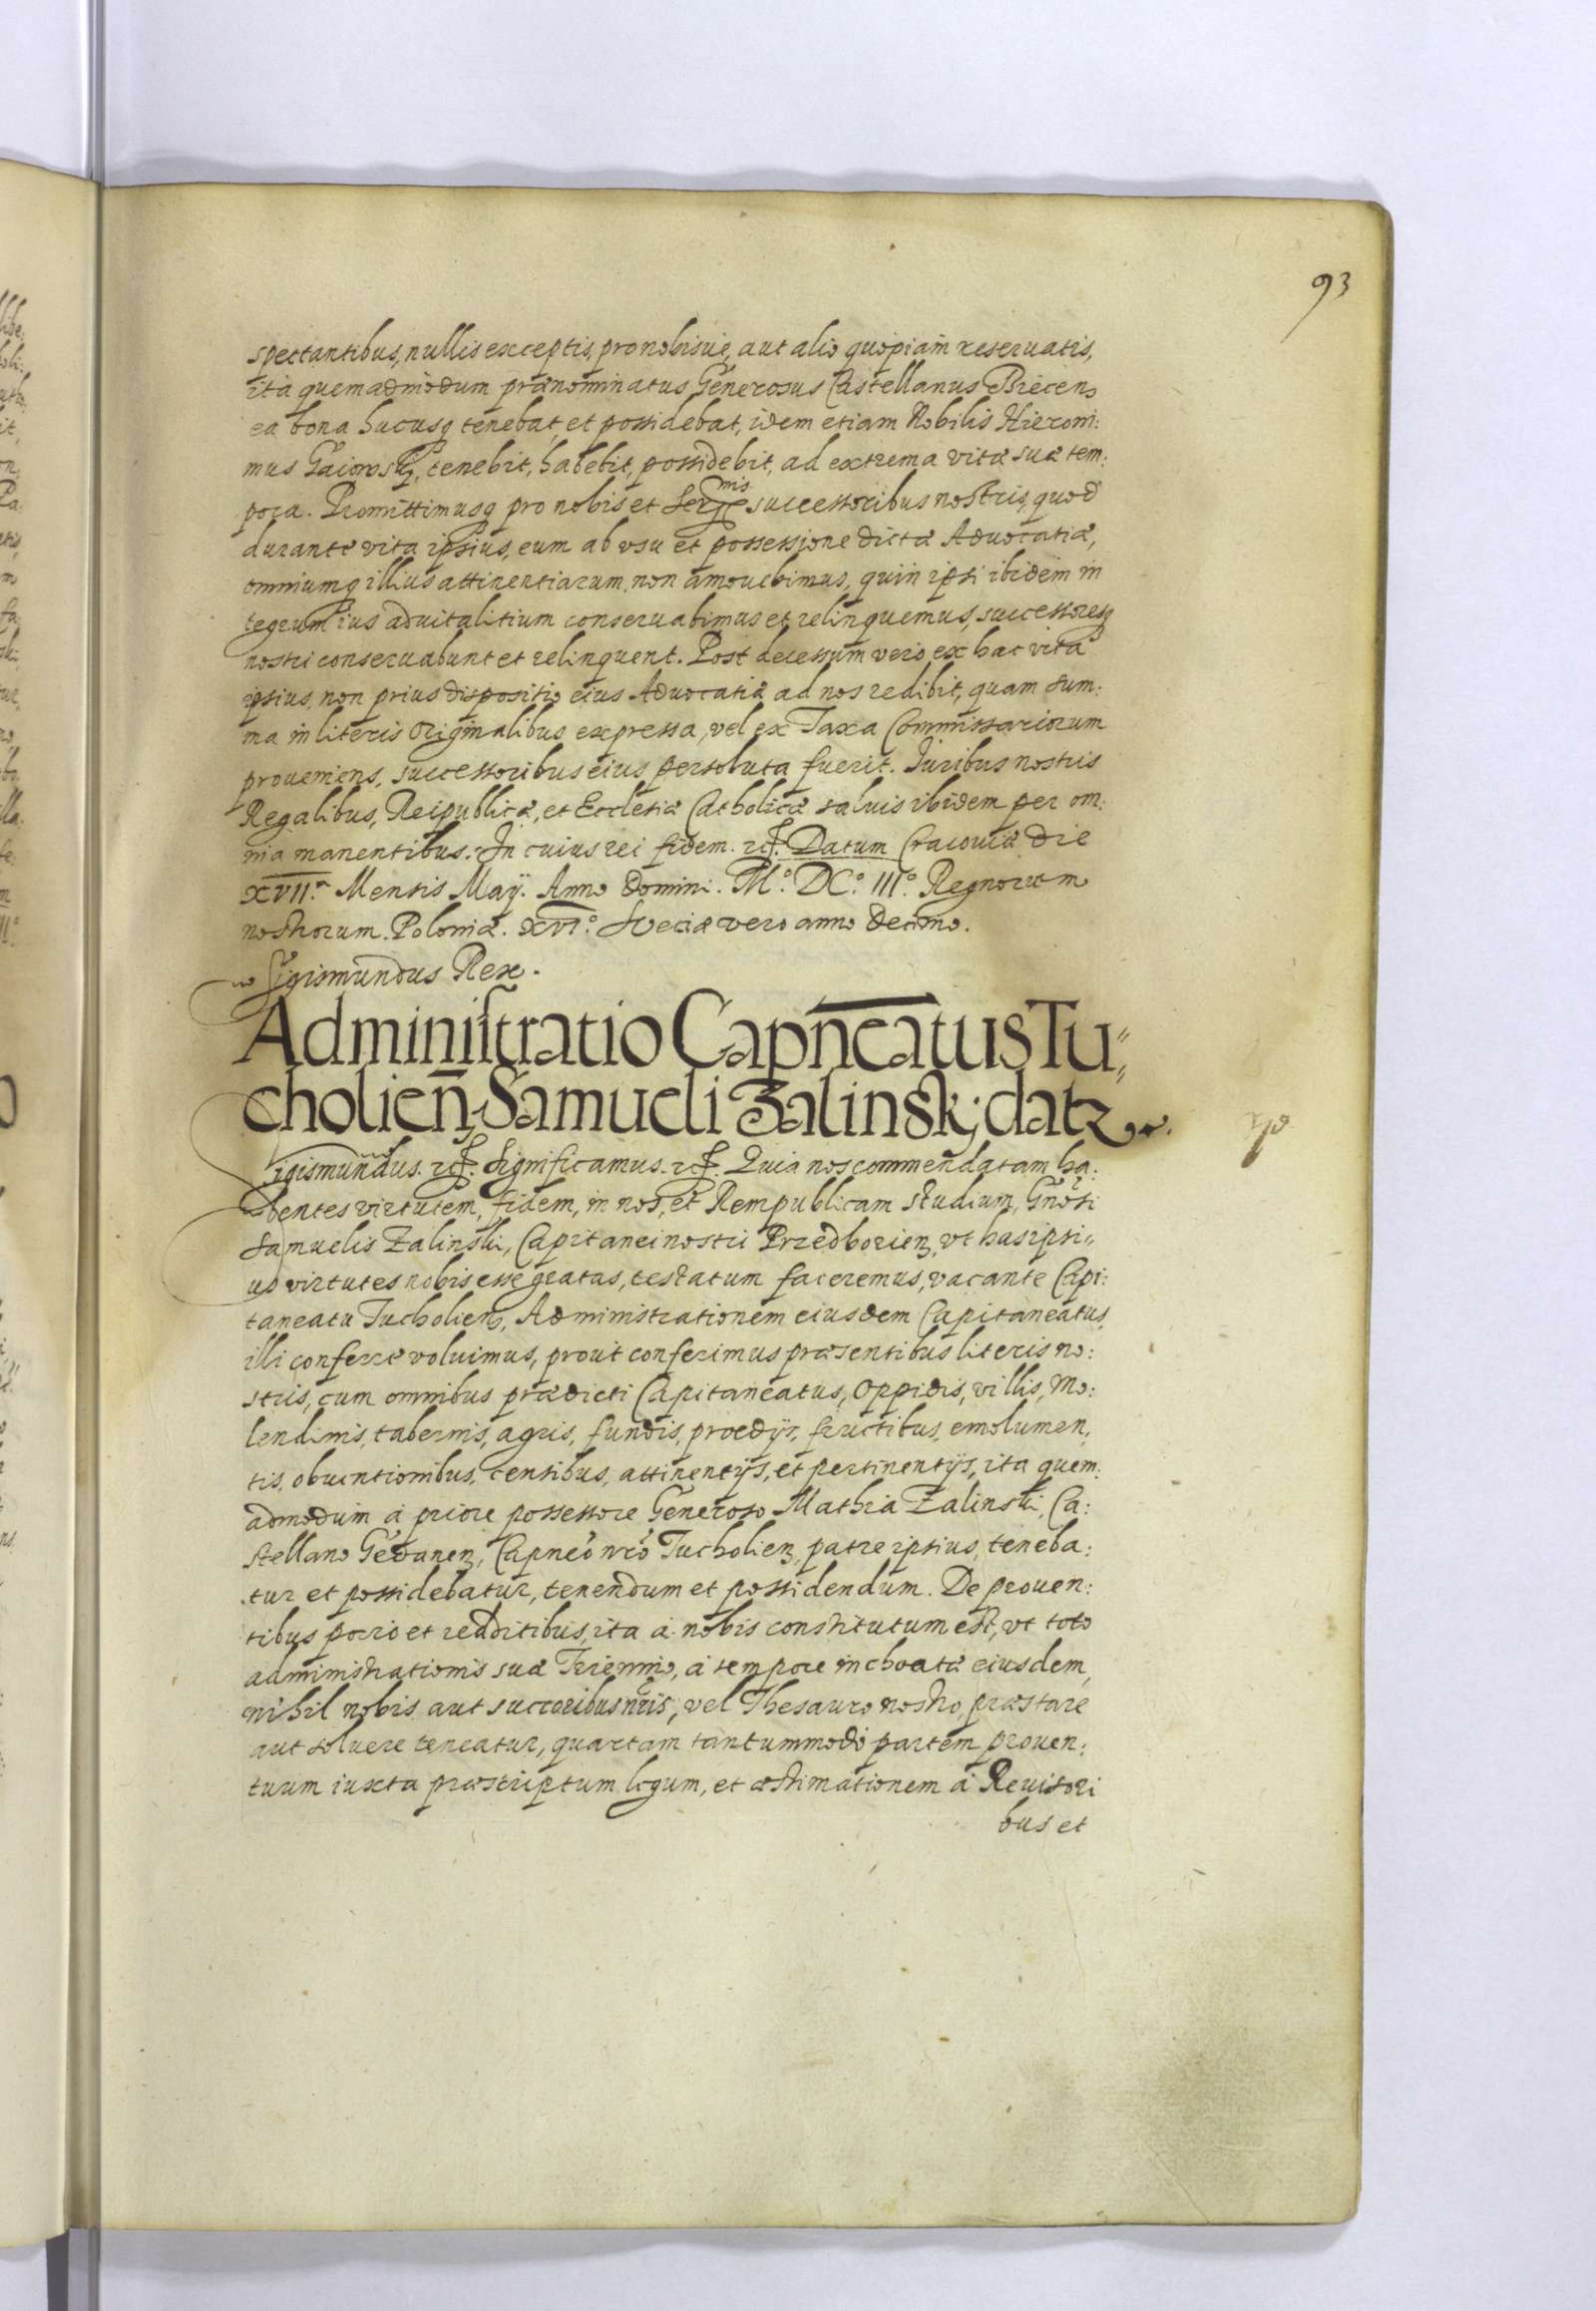 93
spectantibus, nullis exceptis, pro nobisue, aut alio quopiam reseruatis,
ita quemadmodum prænominatus Generosus Castellanus Biecen̄
ea bona hucusq́ tenebat, et possidebat, idem etiam Nobilis Hieroni:
mus tenebit, habebit, possidebit, ad extrema vitæ suæ tem:
pora. Promittimusq́ pro nobis et Ser<sup>mis</sup> successoribus nostris, quod
durante vita ipsius, eum ab vsu et possessione dictæ Aduocatiæ,
omniumq́ illius attinentiarum, non amouebimus, quin ipsi ibidem in
tegrum ius aduitalitium conseruabimus et relinquemus, successoresq́
nostri conseruabunt et relinquent. Post decessum vero ex hac vita
ipsius, non prius dispositio eius Aduocatiæ ad nos redibit, quam sum:
ma in literis Originalibus expressa, vel ex Taxa Commissariorum
proueniens, successoribus eius persoluta fuerit. Iuribus nostris
Regalibus, Reipublicæ, et Ecclesiæ Catholicæ saluis ibidem per om:
nia manentibus. In cuius rei fidem. etc. Datum Cracouiæ die
XVII.a Mensis Maÿ. Anno Domini. M.o DC.o III.o Regnorum
nostrorum. Poloniæ. XVI.o Sueciæ vero anno Decimo.
Sigismundus Rex.
Administratio Capn̄eatus Tu„
cholien̄. Samueli Zalinsky datr.
Sigismundus. etc. Significamus. etc. Quia nos commendatam ha:
bentes virtutem, fidem, in nos, et Rempublicam studium, Gnosi
Samuelis Zalinski, Capitanei nostri Przedborien̄, vt has ipsi„
us virtutes nobis esse gratas, testatum faceremus, vacante Capi:
taneatu Tucholien̄, Administrationem eiusdem Capitaneatus,
illi conferre voluimus, prout conferimus præsentibus literis no:
stris, cum omnibus prædicti Capitaneatus, Oppidis, villis, Mo:
lendinis, tabernis, agris, fundis, prædijs, fructibus, emolumen,
tis, obuentionibus, censibus, attinentijs, et pertinentijs, ita quem:
admodum à priore possessore Generoso Mathia Zalinski, Ca:
stellano Gedanen̄, Capneo nro Tucholien̄, patre ipsius, teneba:
tur et possidebatur, tenendum et possidendum. De prouen:
tibus porro et redditibus, ita à nobis constitutum est, vt toto
administrationis suæ Triennio, à tempore inchoatæ eiusdem,
nihil nobis aut succoribus nris, vel Thesauro nostro, præstare
aut soluere teneatur, quartam tantummodo partem prouen:
tuum iuxta præscriptum legum, et æstimationem à Reuisori
bus et